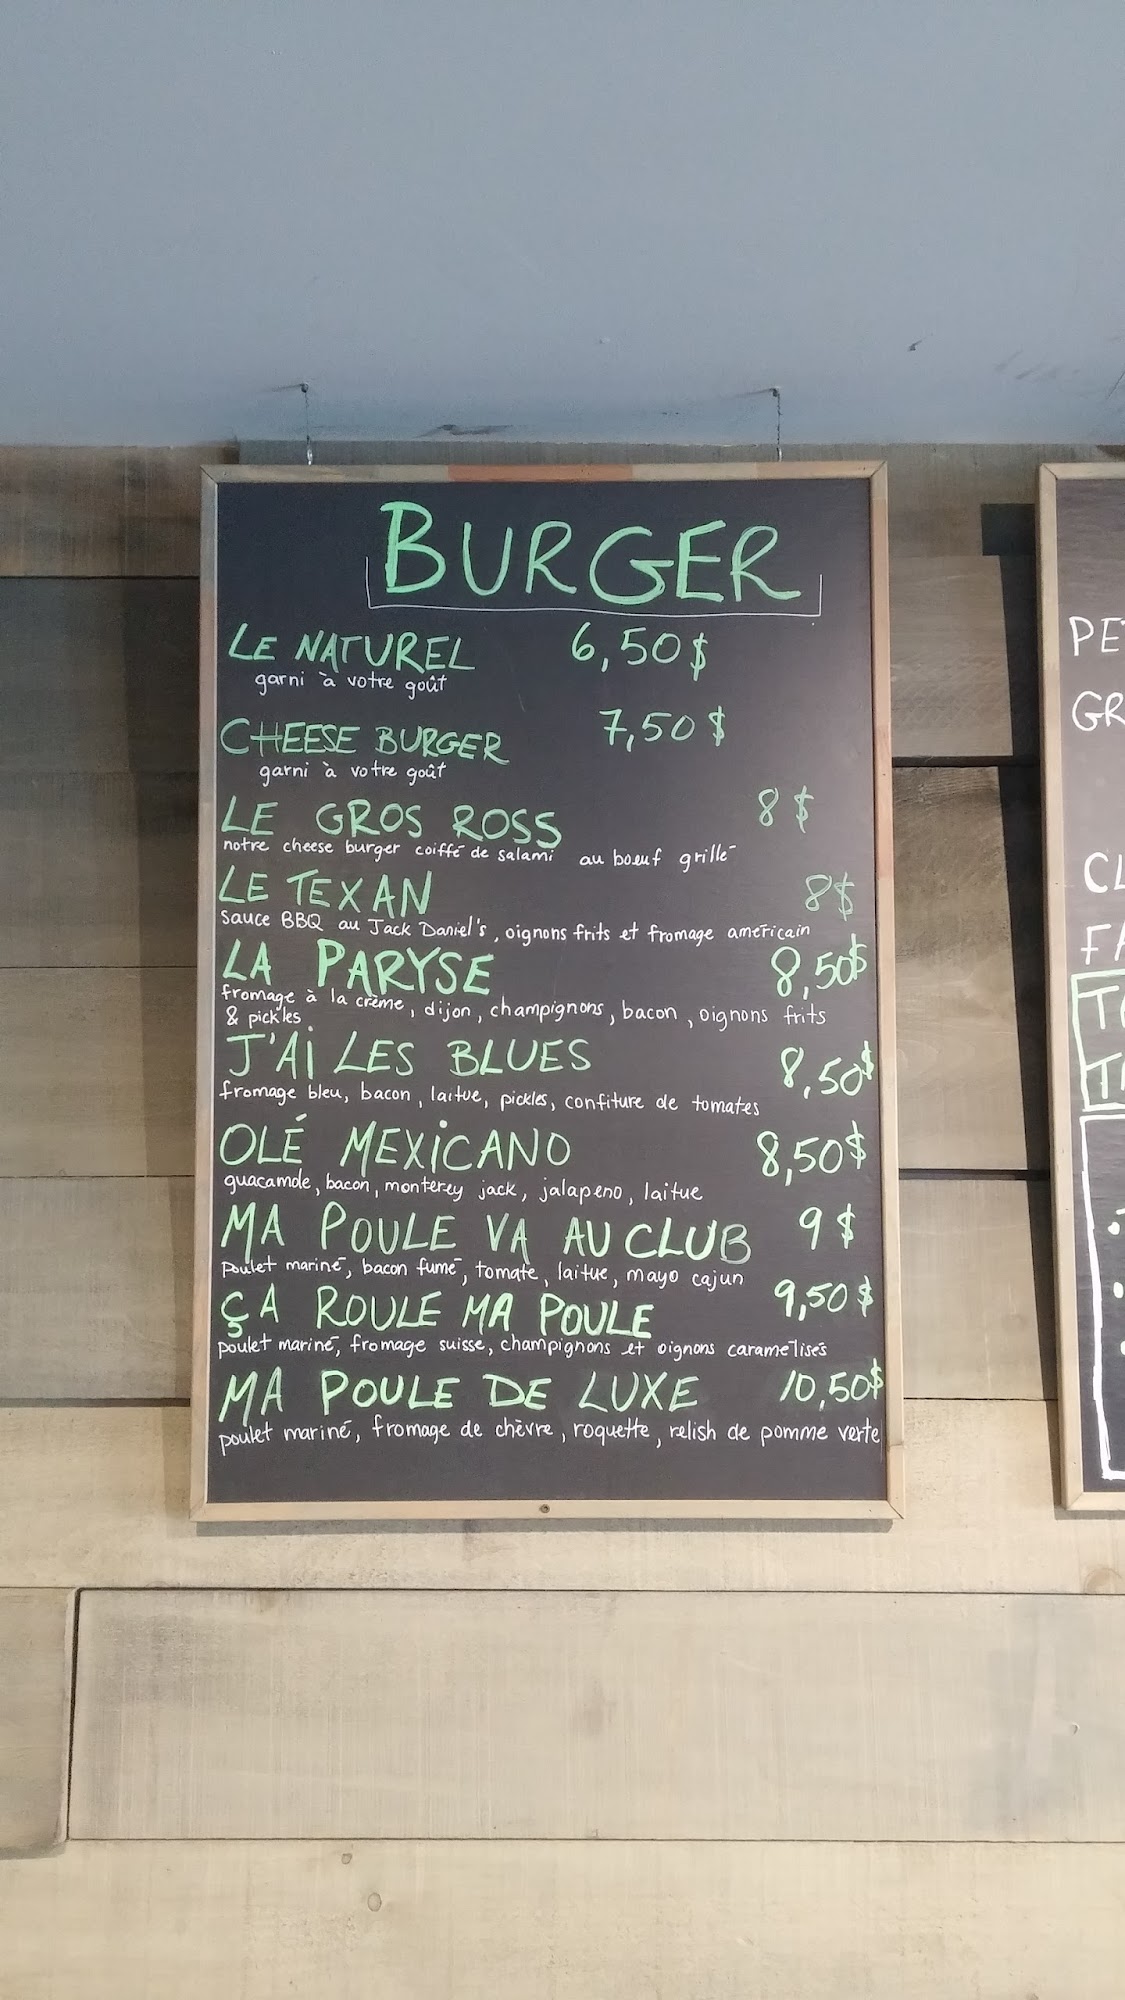 BURGER
LE NATUREL 6,50$
garni à votre goût
CHEESE BURGER 7,50$
garni à votre goût
LE GROS ROSS 8$
notre cheese burger coiffé de salami au boeuf grillé
LE TEXAN 8$
sauce BBQ au Jack Daniel's, oignons frits et fromage américain
LA PARYSE 8,50$
fromage à la crème, dijon, champignons, bacon, oignons frits
& pickles
J'Ai LES BLUES 8,50$
fromage bleu, bacon, laitue, pickles, confiture de tomates
OLÉ MEXiCANO 8,50$
guacamole, bacon, monterey jack, jalapeno, laitue
MA POULE VA AU CLUB 9$
poulet mariné, bacon fumé, tomate, laitue, mayo cajun
ÇA ROULE MA POULE 9,50$
poulet mariné, fromage suisse, champignons et oignons caramélisés
MA POULE DE LUXE 10,50$
poulet mariné, fromage de chèvre, roquette, relish de pomme verte
PE
GR
CL
FA